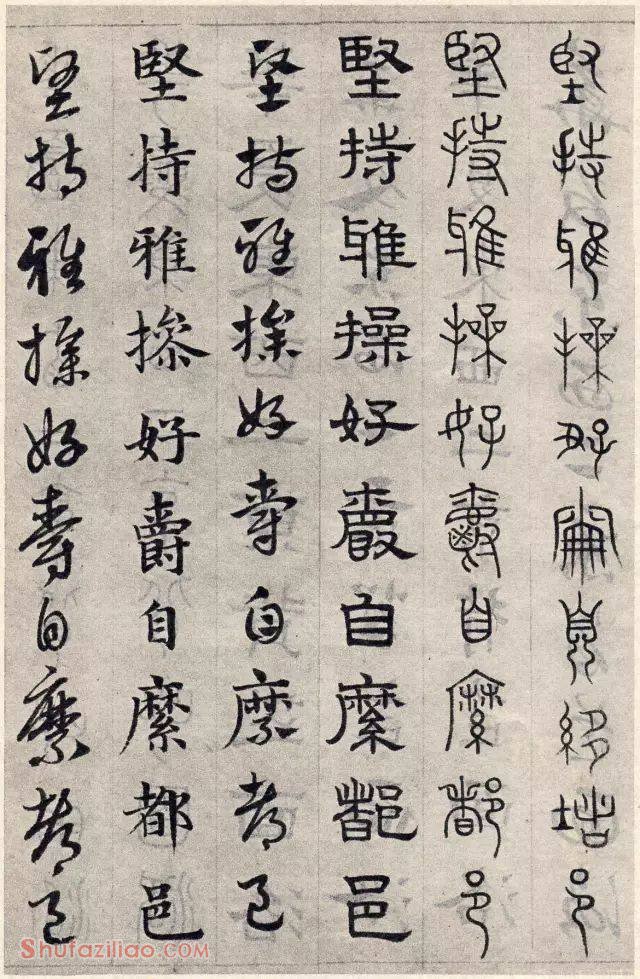 堅持雅操好爵自縻都邑
堅持雅操好爵自縻都邑
堅持雅操好爵自縻都邑
堅持雅操好爵自縻都邑
堅持雅操好爵自縻都邑
堅持雅操好爵自縻都邑
Shufaziliao.COM